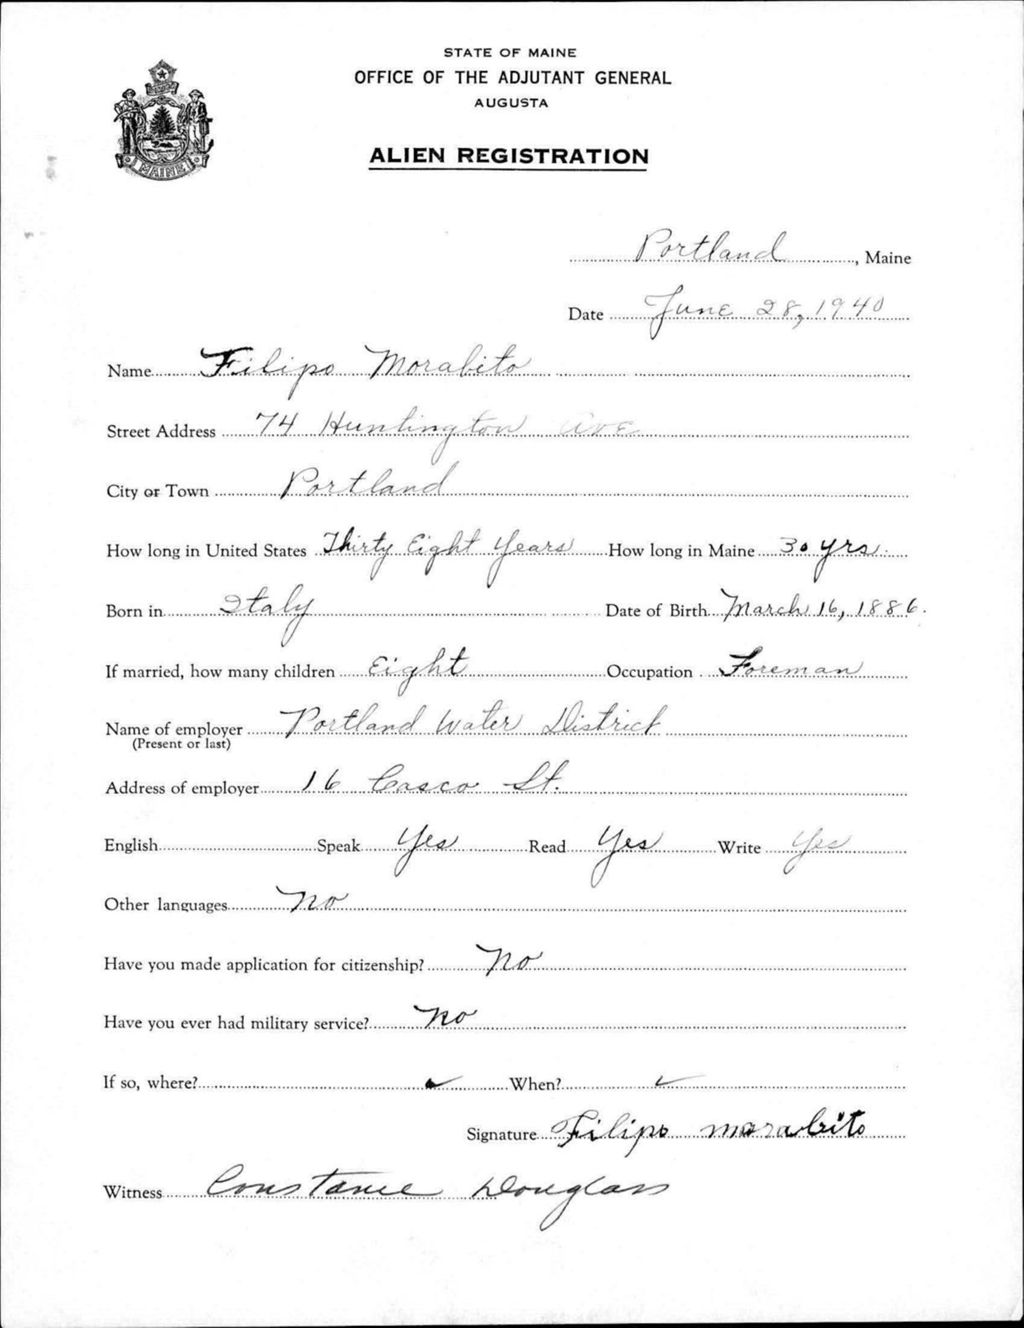 STATE OF MAINE
OFFICE OF THE ADJUTANT GENERAL
AUGUSTA
ALIEN REGISTRATION
MAINE
Portland, Maine
Date June 28, 1940
Name Filipo Morabito
Street Address 74 Huntington Ave
City or Town Portland
How long in United States Thirty Eight Years How long in Maine 30 yrs.
Born in Italy Date of Birth March 16, 1886.
If married, how many children Eight Occupation Foreman
Name of employer Portland Water District
(Present or last)
Address of employer 16 Casco St.
English Speak Yes Read Yes Write Yes
Other languages No
Have you made application for citizenship? No
Have you ever had military service? No
If so, where? ✓ When? ✓
Signature Filipo morabito
Witness Constance Douglass